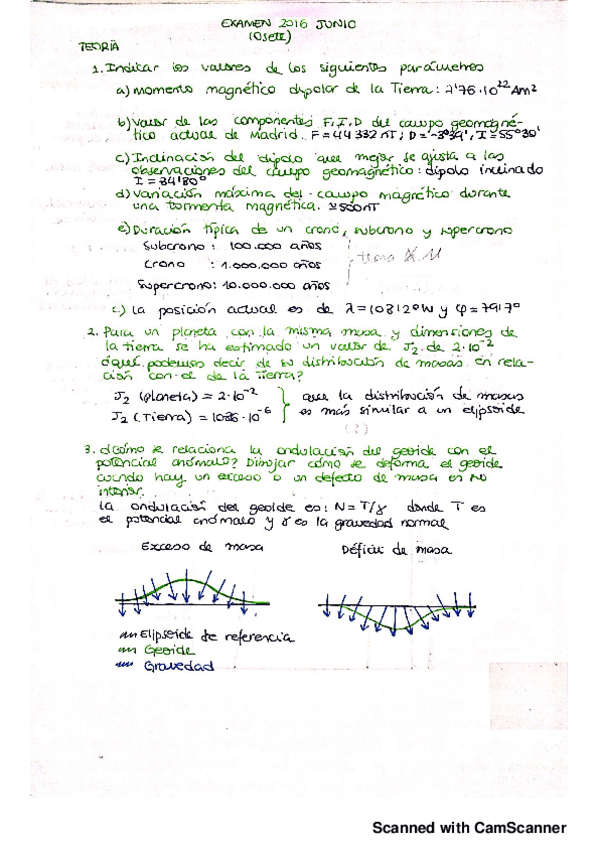 EXAMEN 2016 JUNIO
(Osete)
TEORÍA
1. Indicar los valores de los siguientes parámetros
a) momento magnético dipolar de la Tierra: 7'76·10²² Am²
b) valor de las componentes F, I, D del campo geomagné-
tico actual de Madrid. F=44332 nT; D=-3°39', I=55°30'
c) Inclinación del dipolo que mejor se ajusta a las
observaciones del campo geomagnético: dipolo inclinado
I = 84'80°
d) variación máxima del campo magnético durante
una tormenta magnética. ≃500nT
e) Duración típica de un crono, subcrono y supercrono
Subcrono: 100.000 años
Crono : 1.000.000 años
Supercrono: 10.000.000 años
tema
c) la posición actual es de λ=108'120W y φ=79'17°
2. Para un planeta con la misma masa y dimensiones de
la tierra se ha estimado un valor de J₂ de 2·10⁻²
¿qué podemos decir de su distribución de masas en rela-
ción con el de la Tierra?
J₂ (planeta) = 2·10⁻² que la distribución de masas
J₂ (Tierra) = 1086·10⁻⁶ es más similar a un elipsoide
(?)
3. ¿Cómo se relaciona la ondulación del geoide con el
potencial anómalo? Dibujar cómo se deforma el geoide
cuando hay un exceso o un defecto de masa en su
interior.
la ondulación del geoide es: N=T/γ donde T es
el potencial anómalo y γ es la gravedad normal
Exceso de masa Déficit de masa
Elipsoide de referencia
Geoide
Gravedad
Scanned with CamScanner